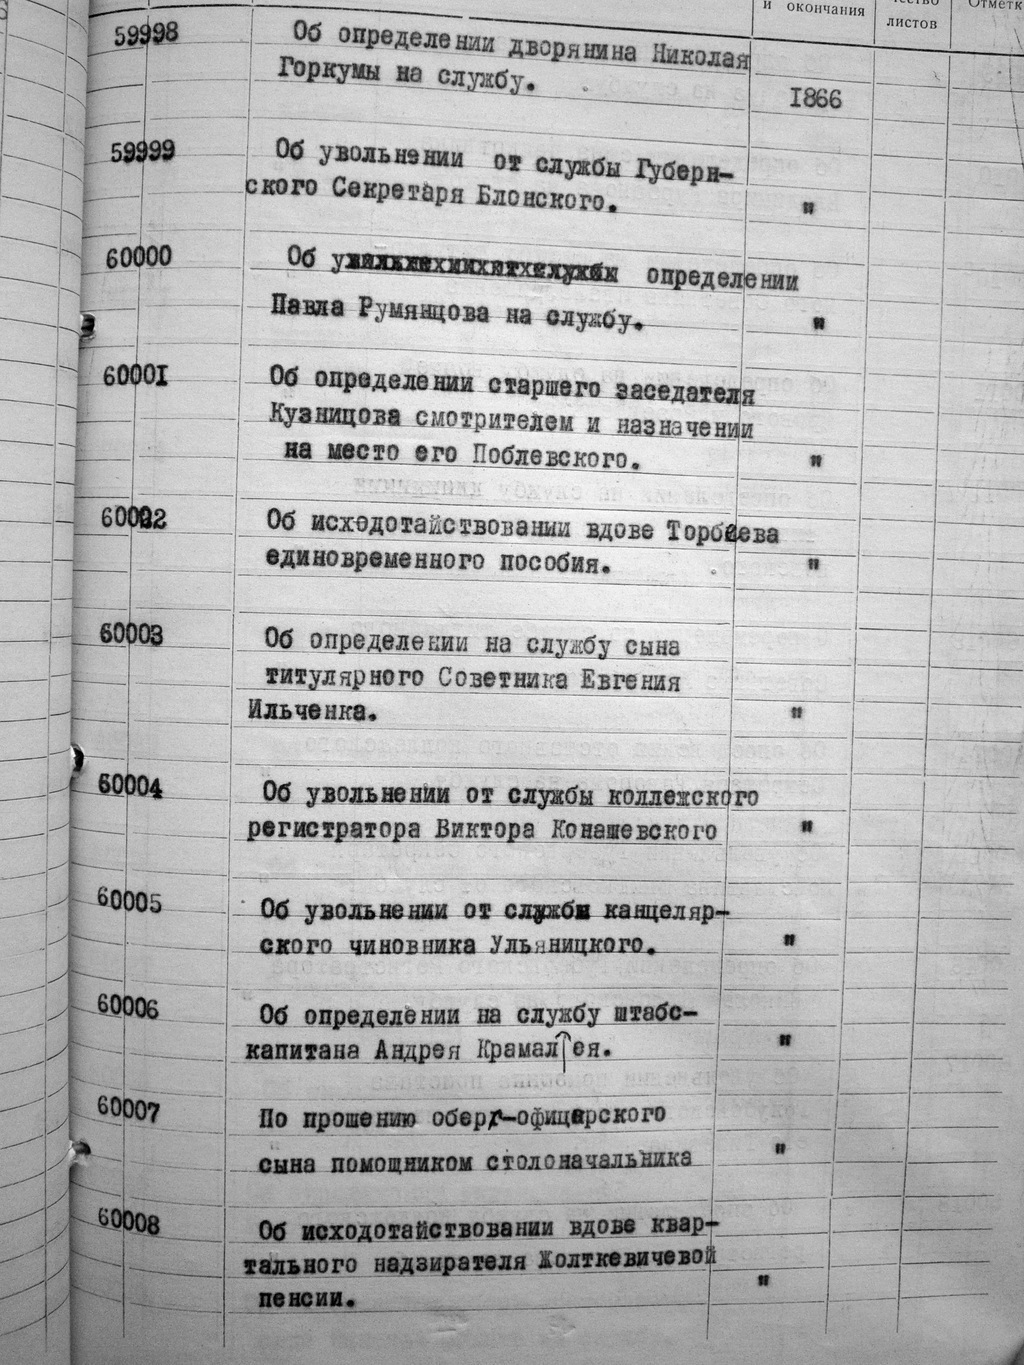 и окончания
листов
Отметк
59998 Об определении дворянина Николая
Горкумы на службу.
1866
59999 Об увольнении от службы Губерн-
ского Секретаря Блонского. "
60000 Об у определении
Павла Румянцова на службу. "
60001 Об определении старшего заседателя
Кузницова смотрителем и назначении
на место его Поблевского. "
60002 Об исходотайствовании вдове Торбаева
единовременного пособия. "
60003 Об определении на службу сына
титулярного Советника Евгения
Ильченка. "
60004 Об увольнении от службы коллежского
регистратора Виктора Конашевского "
60005 Об увольнении от службы канцеляр-
ского чиновника Ульяницкого. "
60006 Об определении на службу штабс-
капитана Андрея Крамалея. "
60007 По прошению обер-офицерского
сына помощником столоначальника "
60008 Об исходотайствовании вдове квар-
тального надзирателя Жолткевичевой
пенсии. "